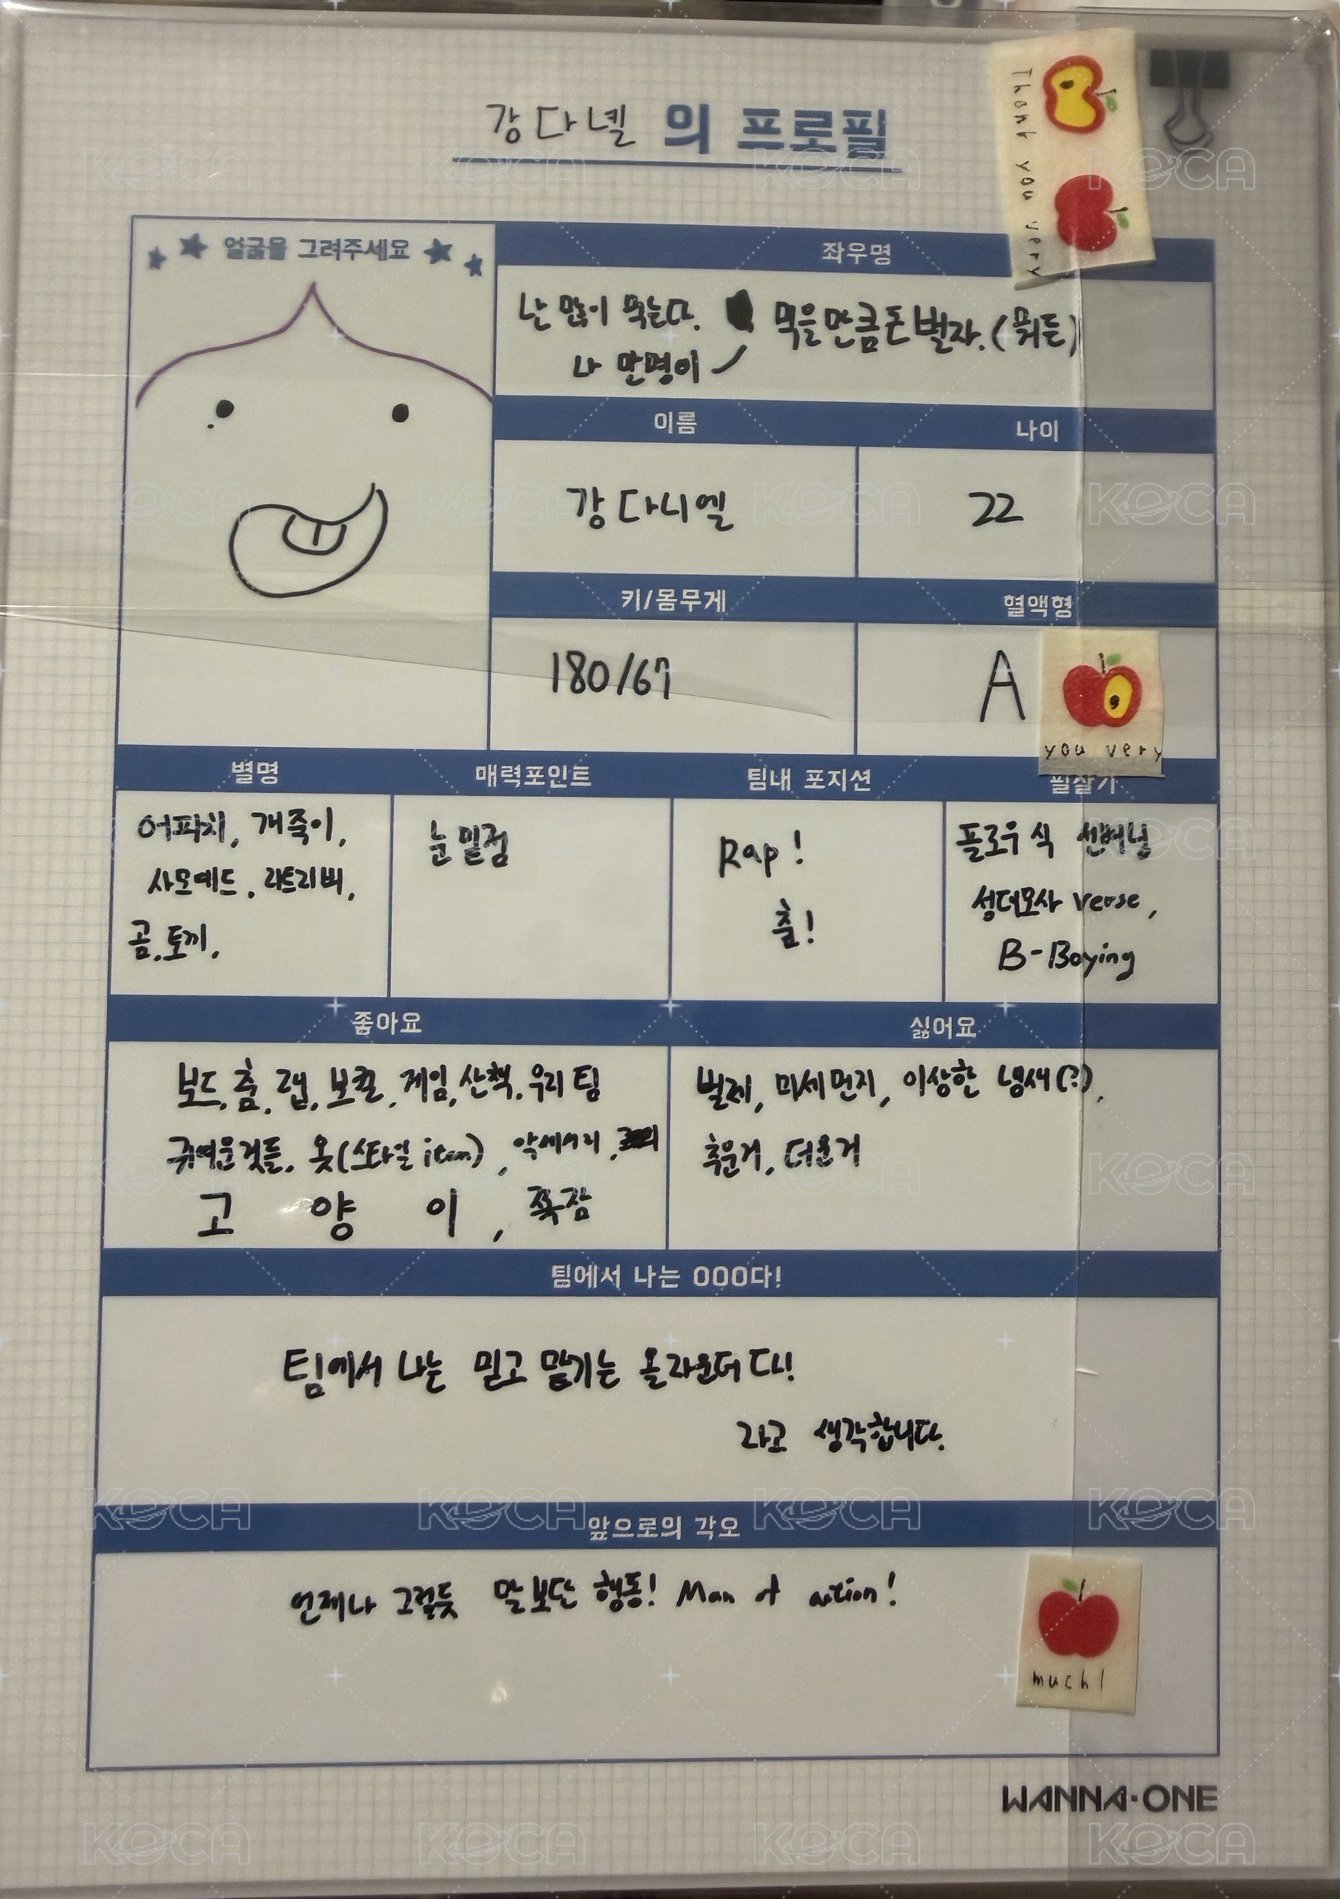 강다넬 의 프로필
Thank you very
얼굴을 그려주세요
좌우명
난 많이 먹는다. 먹을만큼 돈 벌자. (뭐든)
나 만명이
이름
나이
강다니엘
22
키/몸무게
혈액형
180/67
A
you very
별명
매력포인트
팀내 포지션
필살기
어피치, 개죽이,
사모예드, 리트리버,
곰, 토끼,
눈밑점
Rap!
춤!
플로우식
성대모사 verse,
B-Boying
좋아요
싫어요
보드, 춤, 랩, 보컬, 게임, 산책, 우리 팀
귀여운것들, 옷(스타일 item), 악세서리,
고 양 이, 쪽잠
벌레, 미세먼지, 이상한 냄새(?),
추운거, 더운거
팀에서 나는 OOO다!
팀에서 나는 믿고 맡기는 올라운더다!
라고 생각합니다.
앞으로의 각오
언제나 그렇듯 말보단 행동! Man of action!
much!
WANNA·ONE
KOCA